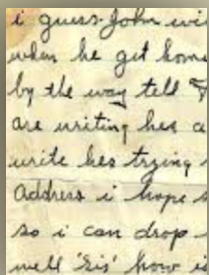 i guess John wi
when he get home
by the way tell
are writing her a
write hes trying
address i hope s
so i can drop
well 'Sis' how is